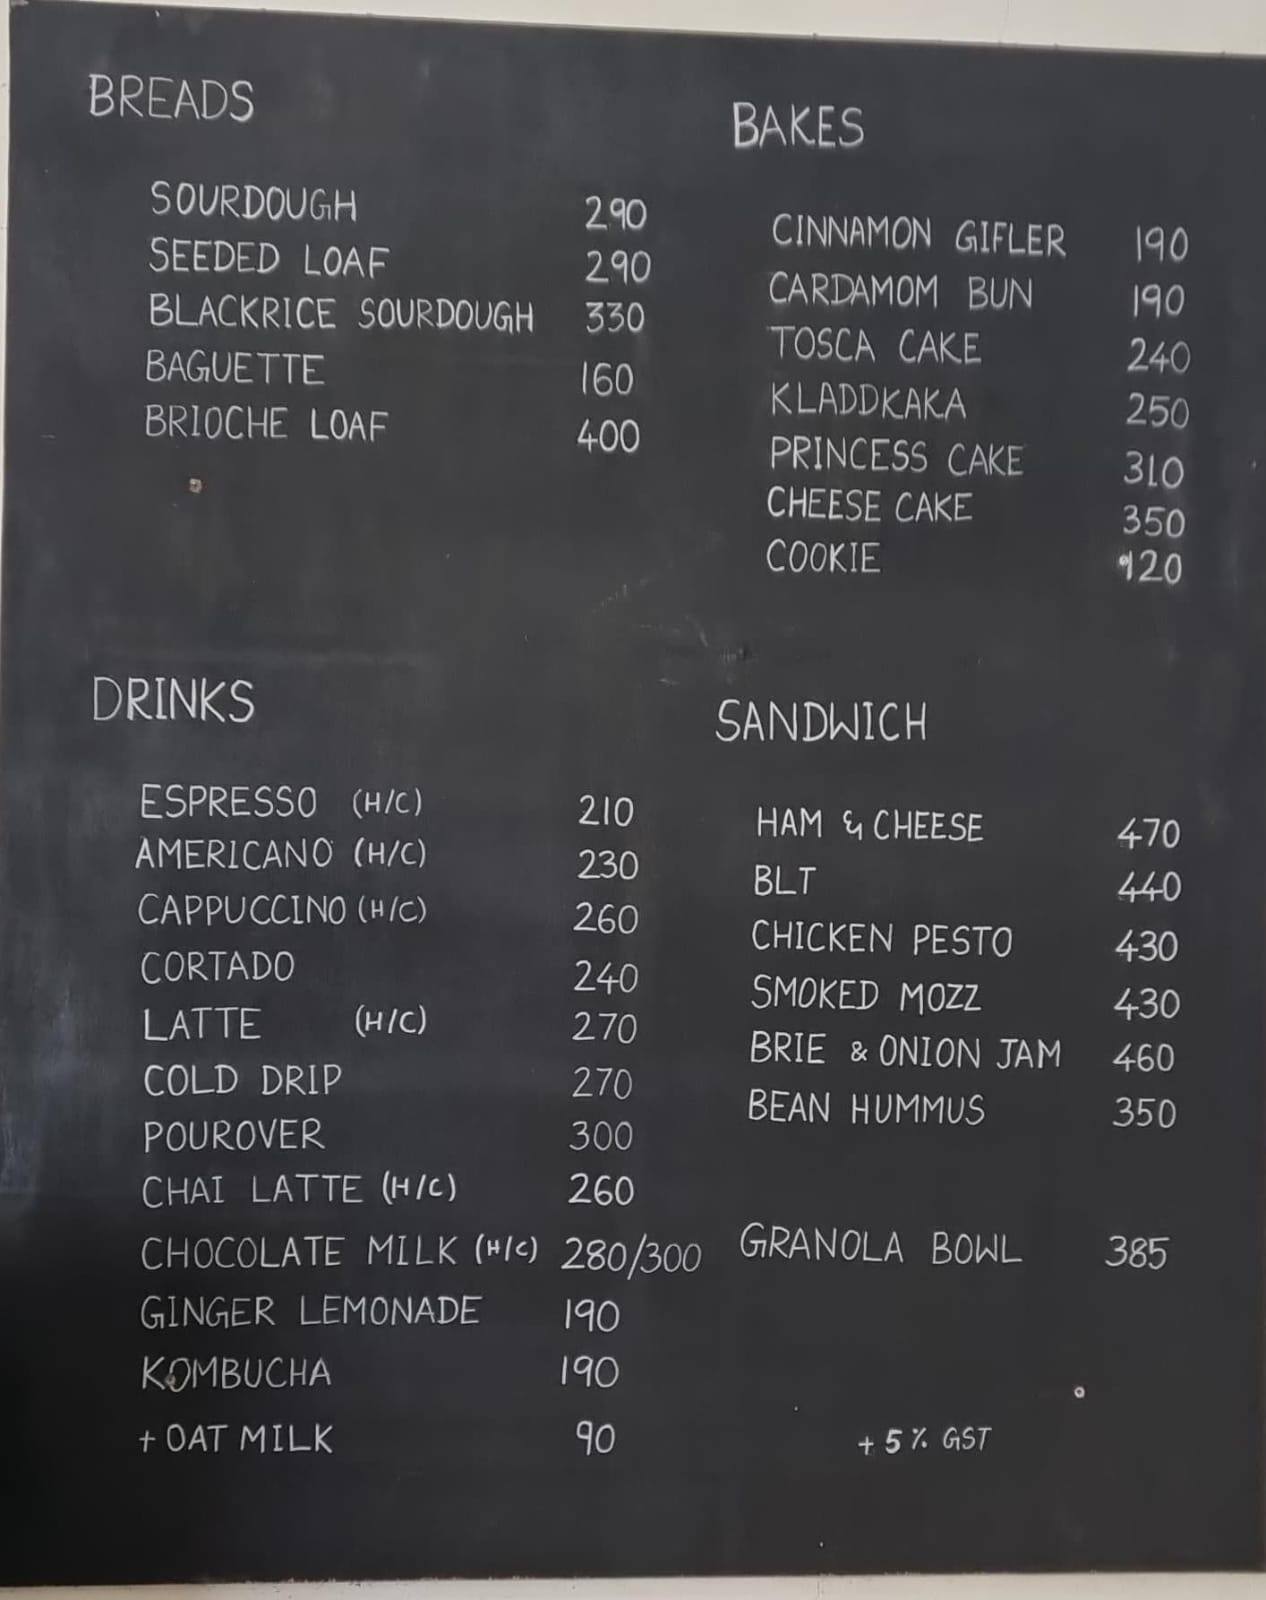 BREADS
SOURDOUGH 290
SEEDED LOAF 290
BLACKRICE SOURDOUGH 330
BAGUETTE 160
BRIOCHE LOAF 400
BAKES
CINNAMON GIFLER 190
CARDAMOM BUN 190
TOSCA CAKE 240
KLADDKAKA 250
PRINCESS CAKE 310
CHEESE CAKE 350
COOKIE 120
DRINKS
ESPRESSO (H/C) 210
AMERICANO (H/C) 230
CAPPUCCINO (H/C) 260
CORTADO 240
LATTE (H/C) 270
COLD DRIP 270
POUROVER 300
CHAI LATTE (H/C) 260
CHOCOLATE MILK (H/C) 280/300
GINGER LEMONADE 190
KOMBUCHA 190
+ OAT MILK 90
SANDWICH
HAM & CHEESE 470
BLT 440
CHICKEN PESTO 430
SMOKED MOZZ 430
BRIE & ONION JAM 460
BEAN HUMMUS 350
GRANOLA BOWL 385
+ 5% GST